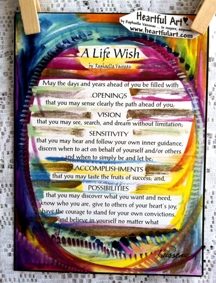 Heartful Art
by Raphaella Vaisseau
www.heartfulart.com
A Life Wish
by Raphaella Vaisseau
May the days and years ahead of you be filled with
OPENINGS
that you may sense clearly the path ahead of you,
VISION
that you may see, search, and dream without limitation,
SENSITIVITY
that you may hear and follow your own inner guidance,
discern when to act on behalf of yourself and/or others,
and when to simply be and let be,
ACCOMPLISHMENTS
that you may taste the fruits of success; and,
POSSIBILITIES
that you may discover what you want and need,
know who you are, give to others of your heart's joy,
have the courage to stand for your own convictions,
and believe in yourself no matter what